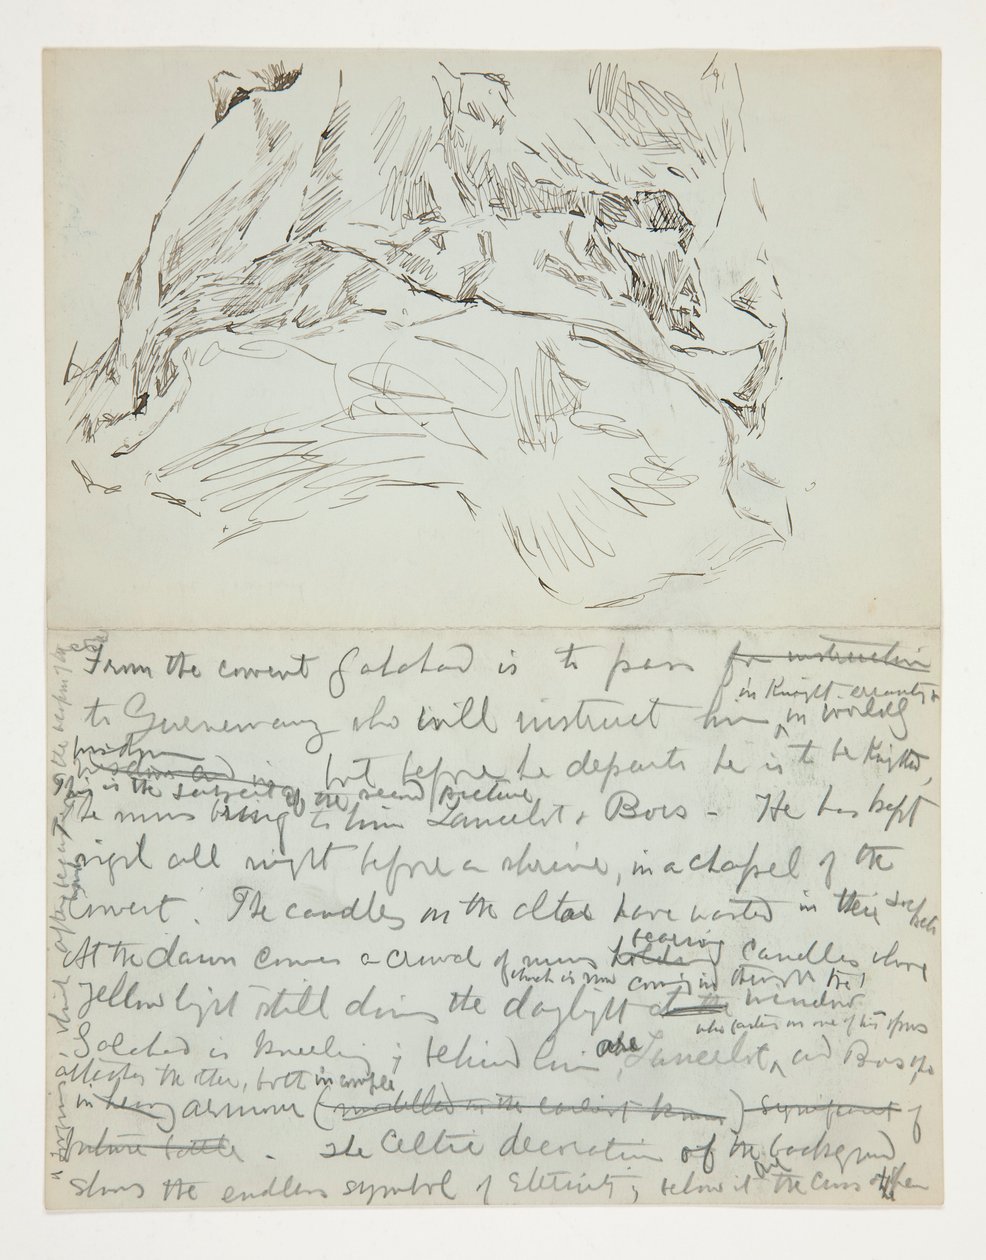 From the convent Galahad is to pass for instruction
in Knight-errantry &
to Gurnemanz who will instruct him in worldly
wisdom
wisdom and in but before he departs he is to be Knighted,
This is the subject of the second picture
The nuns bring to him Lancelot & Bors - He has kept
vigil all night before a shrine, in a chapel of the
convent. The candles on the altar have wasted in their sockets
bearing
At the dawn comes a crowd of nuns holding candles whose
which is now coming in through the
yellow light still dims the daylight at the window
who fastens on one of his spurs
Galahad is kneeling; behind him are Lancelot, and Bors
attaches the other, both in complete
in heavy armour (modelled in the earliest ) significant of
future battle. The Celtic decoration of the background
shows the endless symbol of Eternity; below it the